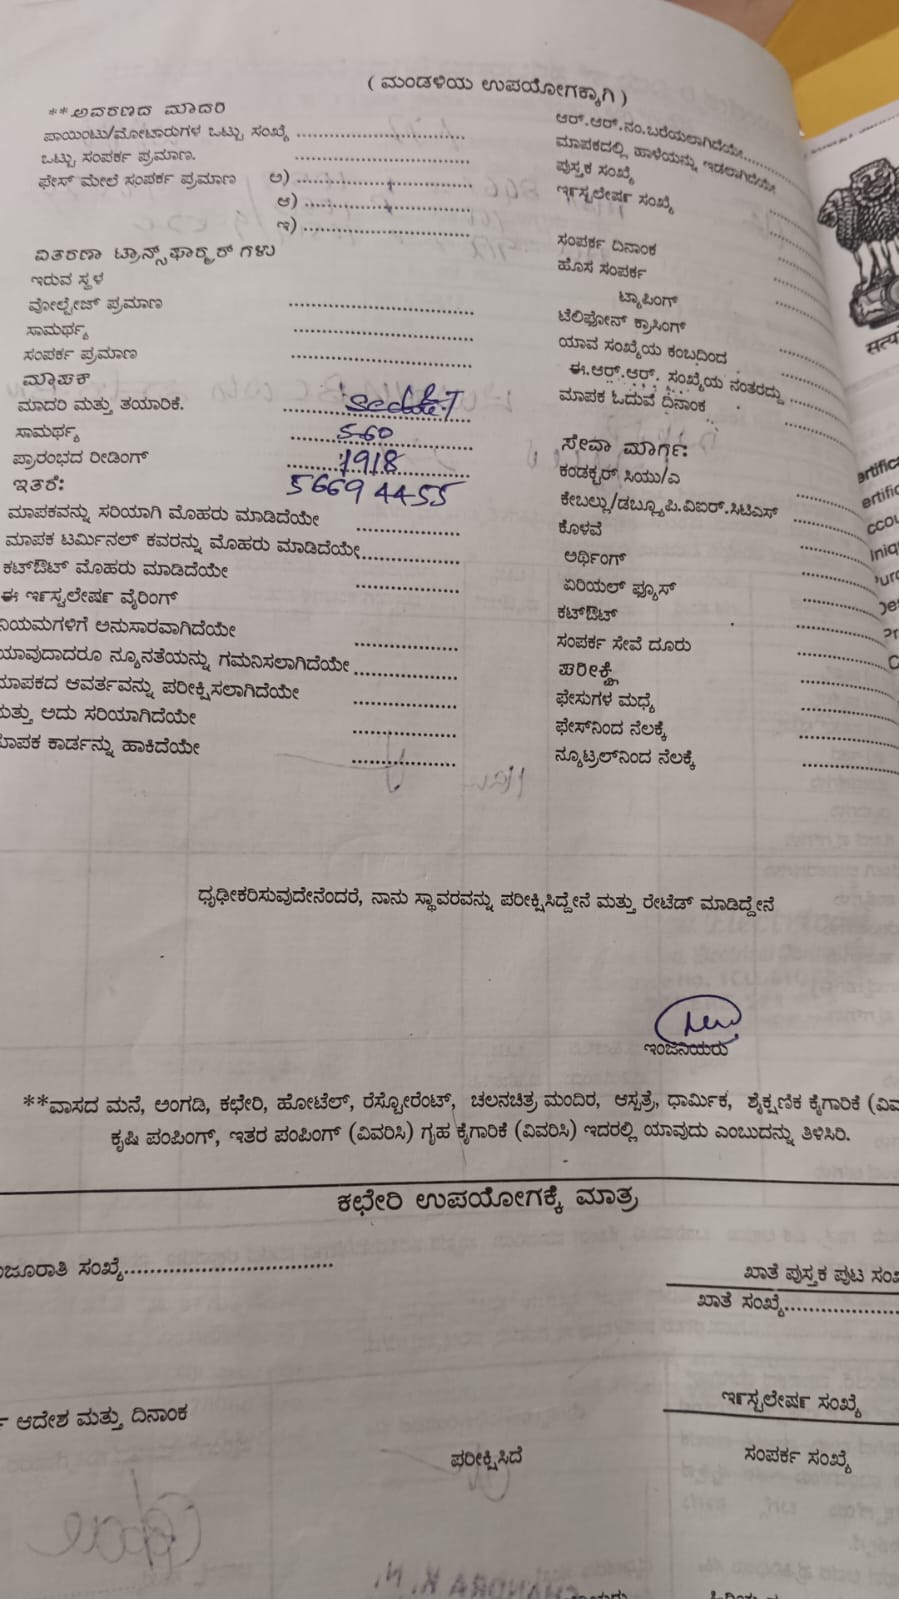 ( ಮಂಡಳಿಯ ಉಪಯೋಗಕ್ಕಾಗಿ )
**ಅವರಣದ ಮಾದರಿ
ಪಾಯಿಂಟು/ಮೋಟಾರುಗಳ ಒಟ್ಟು ಸಂಖ್ಯೆ ..............................
ಒಟ್ಟು ಸಂಪರ್ಕ ಪ್ರಮಾಣ. ..............................
ಫೇಸ್ ಮೇಲೆ ಸಂಪರ್ಕ ಪ್ರಮಾಣ ಅ) ..............................
ಆ) ..............................
ಇ) ..............................
ವಿತರಣಾ ಟ್ರಾನ್ಸ್‌ಫಾರ್‍ಮರ್ ಗಳು
ಇರುವ ಸ್ಥಳ
ವೋಲ್ಟೇಜ್ ಪ್ರಮಾಣ ..............................
ಸಾಮರ್ಥ್ಯ ..............................
ಸಂಪರ್ಕ ಪ್ರಮಾಣ ..............................
ಮಾಪಕ
ಮಾದರಿ ಮತ್ತು ತಯಾರಿಕೆ.
ಸಾಮರ್ಥ್ಯ 5-60
ಪ್ರಾರಂಭದ ರೀಡಿಂಗ್ 1918
ಇತರೆ: 56694455
ಮಾಪಕವನ್ನು ಸರಿಯಾಗಿ ಮೊಹರು ಮಾಡಿದೆಯೇ ....................
ಮಾಪಕ ಟರ್ಮಿನಲ್ ಕವರನ್ನು ಮೊಹರು ಮಾಡಿದೆಯೇ....................
ಕಟ್‌ಔಟ್ ಮೊಹರು ಮಾಡಿದೆಯೇ ....................
ಈ ಇನ್‍ಸ್ಟಲೇಷನ್ ವೈರಿಂಗ್
ನಿಯಮಗಳಿಗೆ ಅನುಸಾರವಾಗಿದೆಯೇ ....................
ಯಾವುದಾದರೂ ನ್ಯೂನತೆಯನ್ನು ಗಮನಿಸಲಾಗಿದೆಯೇ....................
ಮಾಪಕದ ಆವರ್ತವನ್ನು ಪರೀಕ್ಷಿಸಲಾಗಿದೆಯೇ ....................
ಮತ್ತು ಅದು ಸರಿಯಾಗಿದೆಯೇ ....................
ಮಾಪಕ ಕಾರ್ಡನ್ನು ಹಾಕಿದೆಯೇ ....................
ಆರ್.ಆರ್.ನಂ.ಬರೆಯಲಾಗಿದೆಯೇ..........
ಮಾಪಕದಲ್ಲಿ ಹಾಳೆಯನ್ನು ಇಡಲಾಗಿದೆಯೇ
ಪುಸ್ತಕ ಸಂಖ್ಯೆ
ಇನ್‍ಸ್ಟಲೇಷನ್ ಸಂಖ್ಯೆ
ಸಂಪರ್ಕ ದಿನಾಂಕ
ಹೊಸ ಸಂಪರ್ಕ
ಟ್ಯಾಪಿಂಗ್
ಟೆಲಿಫೋನ್ ಕ್ರಾಸಿಂಗ್
ಯಾವ ಸಂಖ್ಯೆಯ ಕಂಬದಿಂದ
ಈ.ಆರ್.ಆರ್. ಸಂಖ್ಯೆಯ ನಂತರದ್ದು
ಮಾಪಕ ಓದುವ ದಿನಾಂಕ
ಸೇವಾ ಮಾರ್ಗ:
ಕಂಡಕ್ಟರ್ ಸಿಯು/ಎ
ಕೇಬಲ್ಲು/ಡಬ್ಲ್ಯೂ.ಪಿ.ವಿಐಆರ್.ಸಿಟಿಎಸ್
ಕೊಳವೆ
ಅರ್ಥಿಂಗ್
ಏರಿಯಲ್ ಫ್ಯೂಸ್
ಕಟ್‌ಔಟ್
ಸಂಪರ್ಕ ಸೇವೆ ದೂರು
ಪರೀಕ್ಷೆ
ಫೇಸುಗಳ ಮಧ್ಯೆ
ಫೇಸ್‌ನಿಂದ ನೆಲಕ್ಕೆ
ನ್ಯೂಟ್ರಲ್‌ನಿಂದ ನೆಲಕ್ಕೆ
ಧೃಢೀಕರಿಸುವುದೇನೆಂದರೆ, ನಾನು ಸ್ಥಾವರವನ್ನು ಪರೀಕ್ಷಿಸಿದ್ದೇನೆ ಮತ್ತು ರೇಟೆಡ್ ಮಾಡಿದ್ದೇನೆ
ಇಂಜಿನಿಯರು
**ವಾಸದ ಮನೆ, ಅಂಗಡಿ, ಕಛೇರಿ, ಹೋಟೆಲ್, ರೆಸ್ಟೋರೆಂಟ್, ಚಲನಚಿತ್ರ ಮಂದಿರ, ಆಸ್ಪತ್ರೆ, ಧಾರ್ಮಿಕ, ಶೈಕ್ಷಣಿಕ ಕೈಗಾರಿಕೆ
ಕೃಷಿ ಪಂಪಿಂಗ್, ಇತರ ಪಂಪಿಂಗ್ (ವಿವರಿಸಿ) ಗೃಹ ಕೈಗಾರಿಕೆ (ವಿವರಿಸಿ) ಇದರಲ್ಲಿ ಯಾವುದು ಎಂಬುದನ್ನು ತಿಳಿಸಿರಿ.
ಕಛೇರಿ ಉಪಯೋಗಕ್ಕೆ ಮಾತ್ರ
ಸಂಖ್ಯೆ..............................
ಖಾತೆ ಪುಸ್ತಕ ಪುಟ
ಖಾತೆ ಸಂಖ್ಯೆ....................
ಆದೇಶ ಮತ್ತು ದಿನಾಂಕ
ಇನ್‍ಸ್ಟಲೇಷನ್ ಸಂಖ್ಯೆ
ಪರೀಕ್ಷಿಸಿದೆ
ಸಂಪರ್ಕ ಸಂಖ್ಯೆ